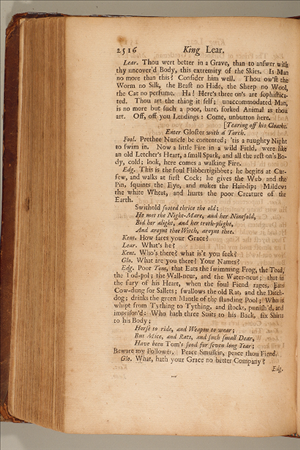 2516 King Lear.
Lear. Thou wert better in a Grave, than to answer with
thy uncover'd Body, this extremity of the Skies. Is Man
no more than this? Consider him well. Thou ow'st the
Worm no Silk, the Beast no Hide, the Sheep no Wool,
the Cat no perfume. Ha! Here's three on's are sophistica-
ted. Thou art the thing it self; unaccommodated Man,
is no more but such a poor, bare, forked Animal as thou
art. Off, off you Lendings: Come, unbutton here.
[Tearing off his Cloaths.
Enter Gloster with a Torch.
Fool. Prethee Nuncle be contented; 'tis a naughty Night
to swim in. Now a little Fire in a wild Field, were like
an old Letcher's Heart, a small Spark, and all the rest on's Bo-
dy, cold; look, here comes a walking Fire.
Edg. This is the foul Flibbertigibbet; he begins at Cur-
few, and walks at first Cock; he gives the Web and the
Pin, squints the Eye, and makes the Hair-lip; Mildews
the white Wheat, and hurts the poor Creature of the
Earth.
Swithold footed thrice the old;
He met the Night-Mare, and her Ninefold,
Bid her alight, and her troth-plight,
And aroynt thee Witch, aroynt thee.
Kent. How fares your Grace?
Lear. What's he?
Kent. Who's there? what is't you seek?
Glo. What are you there? Your Names?
Edg. Poor Tom, that Eats the swimming Frog, the Toad,
the Tod-pol; the Wall-neut, and the Water-neut; that in
the fury of his Heart, when the foul Fiend rages, Eats
Cow-dung for Sallets; swallows the old Rat, and the Ditch-
dog; drinks the green Mantle of the standing Pool; Who is
whipt from Tything to Tything, and stocks, punish'd, and
imprison'd: Who hath three Suits to his Back, six Shirts
to his Body;
Horse to ride, and Weapon to wear;
But Mice, and Rats, and such small Dear,
Have been Tom's food for seven long Year:
Beware my Follower. Peace Smulkin, peace thou Fiend.
Glo. What, hath your Grace no better Company?
Edg.